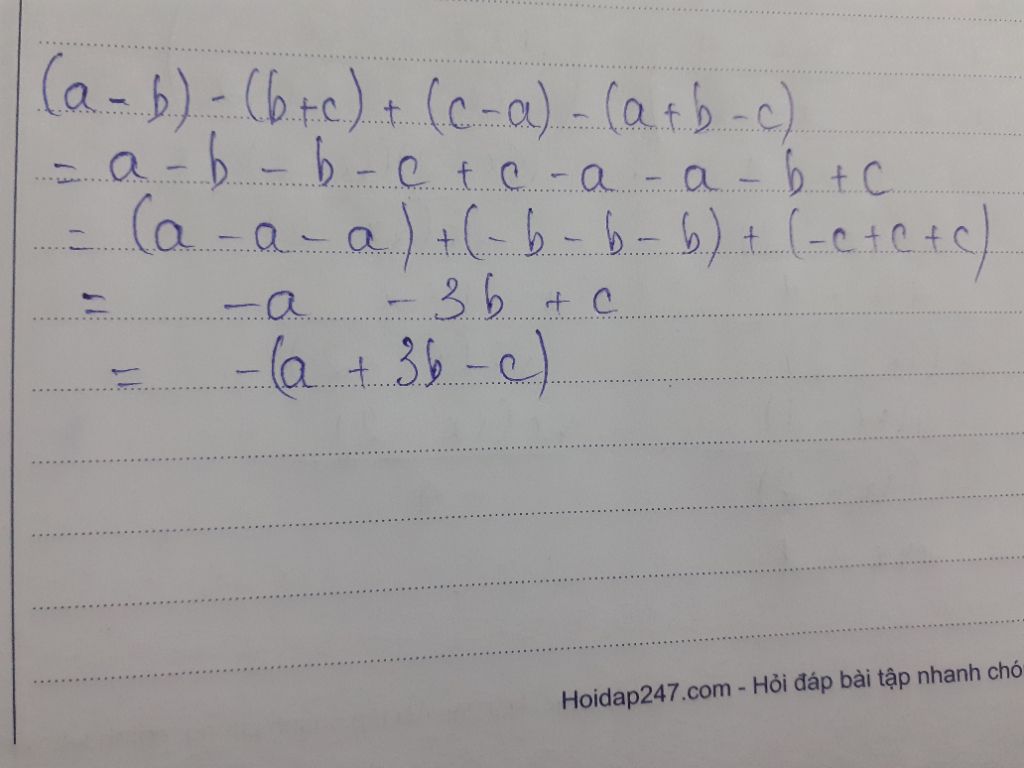 (a - b) - (b+c) + (c-a) - (a+b-c)
= a - b - b - c + c - a - a - b + c
= (a - a - a) + (- b - b - b) + (-c + c + c)
= -a - 3b + c
= -(a + 3b - c)
Hoidap247.com - Hỏi đáp bài tập nhanh